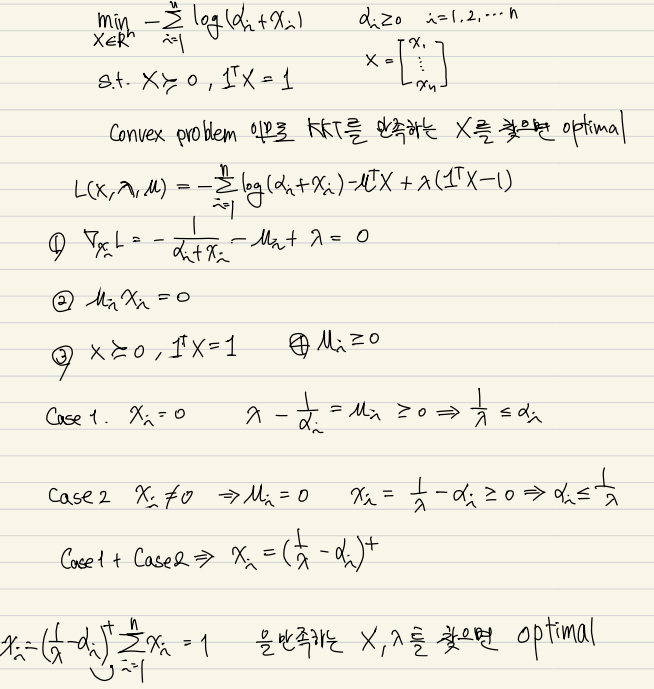 min_{X∈Rⁿ} -∑_{i=1}^{n} log(αᵢ+xᵢ)    αᵢ≥0   i=1,2,⋯n
s.t. X⪰0, 1ᵀX=1    X=[x₁ ⋮ xₙ]
Convex problem 이므로 KKT를 만족하는 X를 찾으면 optimal
L(x,λ,μ) = -∑_{i=1}^{n} log(αᵢ+xᵢ)-μᵀX+λ(1ᵀX-1)
① ∇_{xᵢ}L = -1/(αᵢ+xᵢ) -μᵢ+λ = 0
② μᵢxᵢ=0
③ X⪰0, 1ᵀX=1   ④ μᵢ≥0
Case 1. xᵢ=0    λ-1/αᵢ=μᵢ ≥0 ⇒ 1/λ ≤αᵢ
Case 2 xᵢ≠0 ⇒μᵢ=0    xᵢ= 1/λ -αᵢ≥0 ⇒ αᵢ≤ 1/λ
Case1+Case2⇒ xᵢ=(1/λ -αᵢ)⁺
xᵢ=(1/λ-αᵢ)⁺ ∑_{i=1}^{n} xᵢ=1   을 만족하는 X,λ를 찾으면 optimal